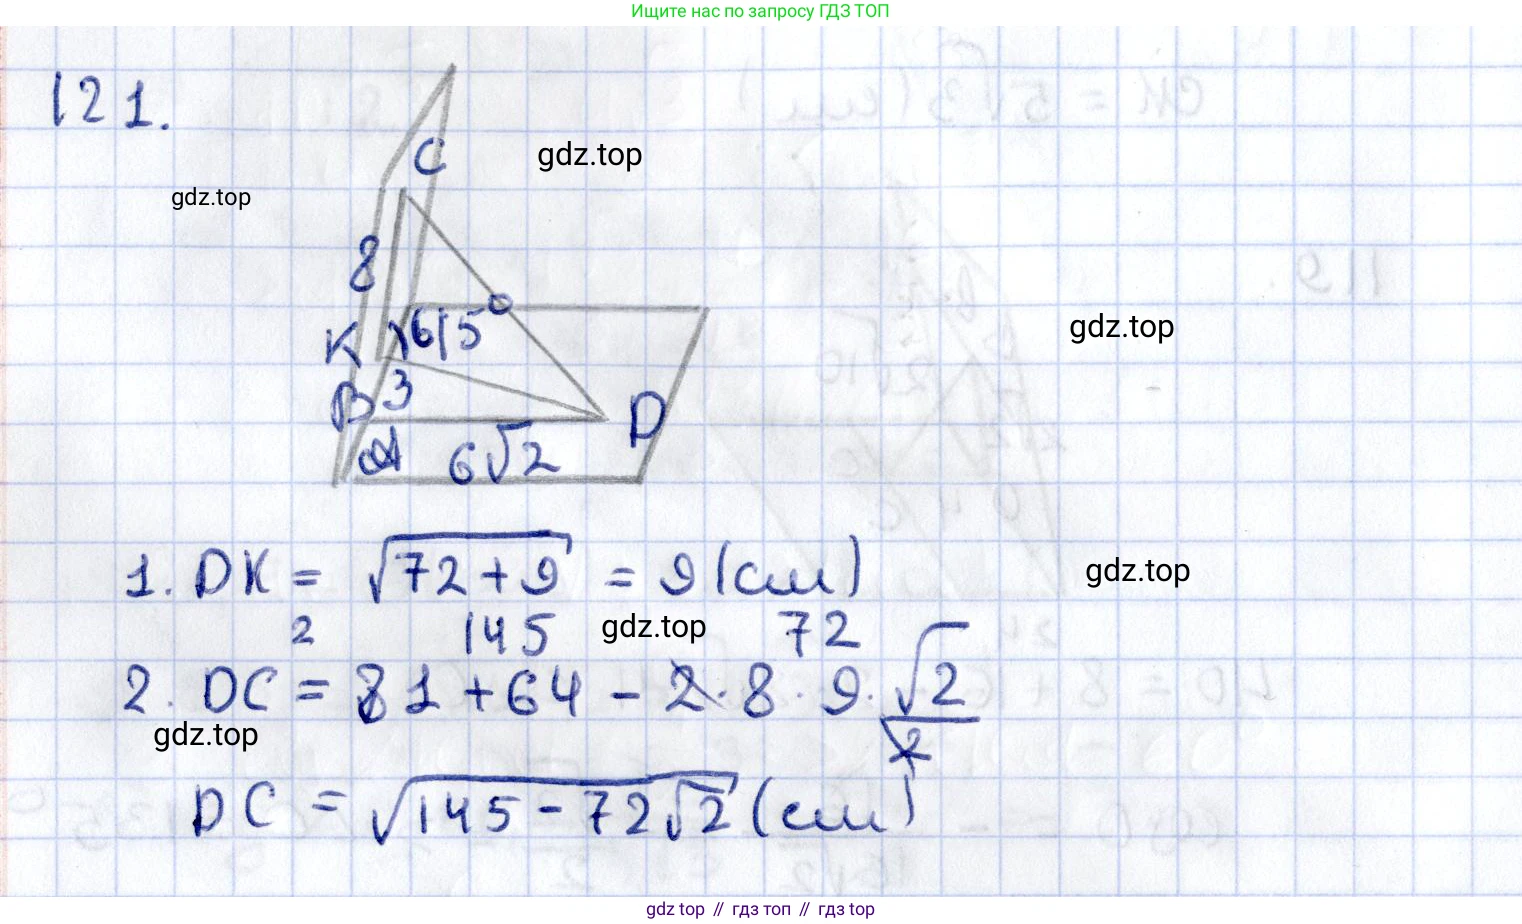 Ищите нас по запросу ГДЗ ТОП
121.
C
gdz.top
gdz.top
8
K
615°
gdz.top
B
3
D
A
6√2
1. DK = √(72+9) = 9 (см)
gdz.top
2 145 gdz.top 72
2. DC = 81 + 64 - 2·8·9·√2/2
gdz.top
DC = √(145-72√2) (см)
gdz top // гдз топ // гдз top